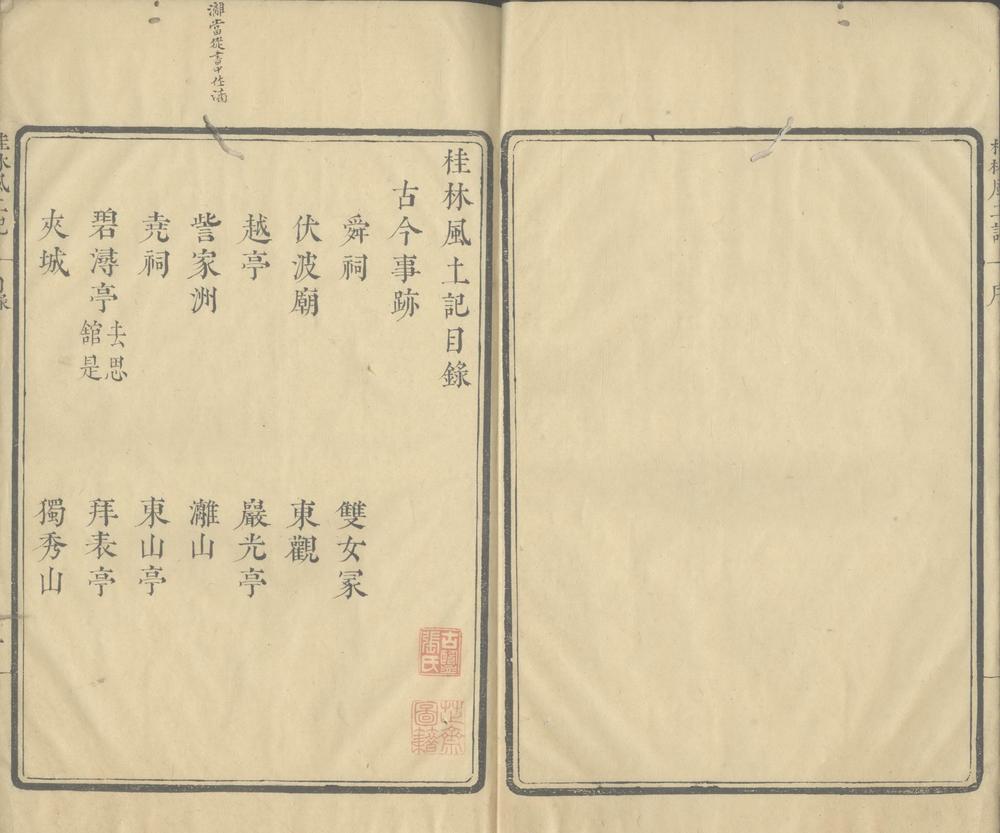 桂林風土記 序
桂林風土記目錄
古今事跡
舜祠 雙女冢
伏波廟 東觀
越亭 巖光亭
訾家洲 灕山
尭祠 東山亭
碧潯亭 去思舘是 拜表亭
夾城 獨秀山
灕當從書中作
古鹽張氏
芷齋圖籍
桂林風土記 目錄